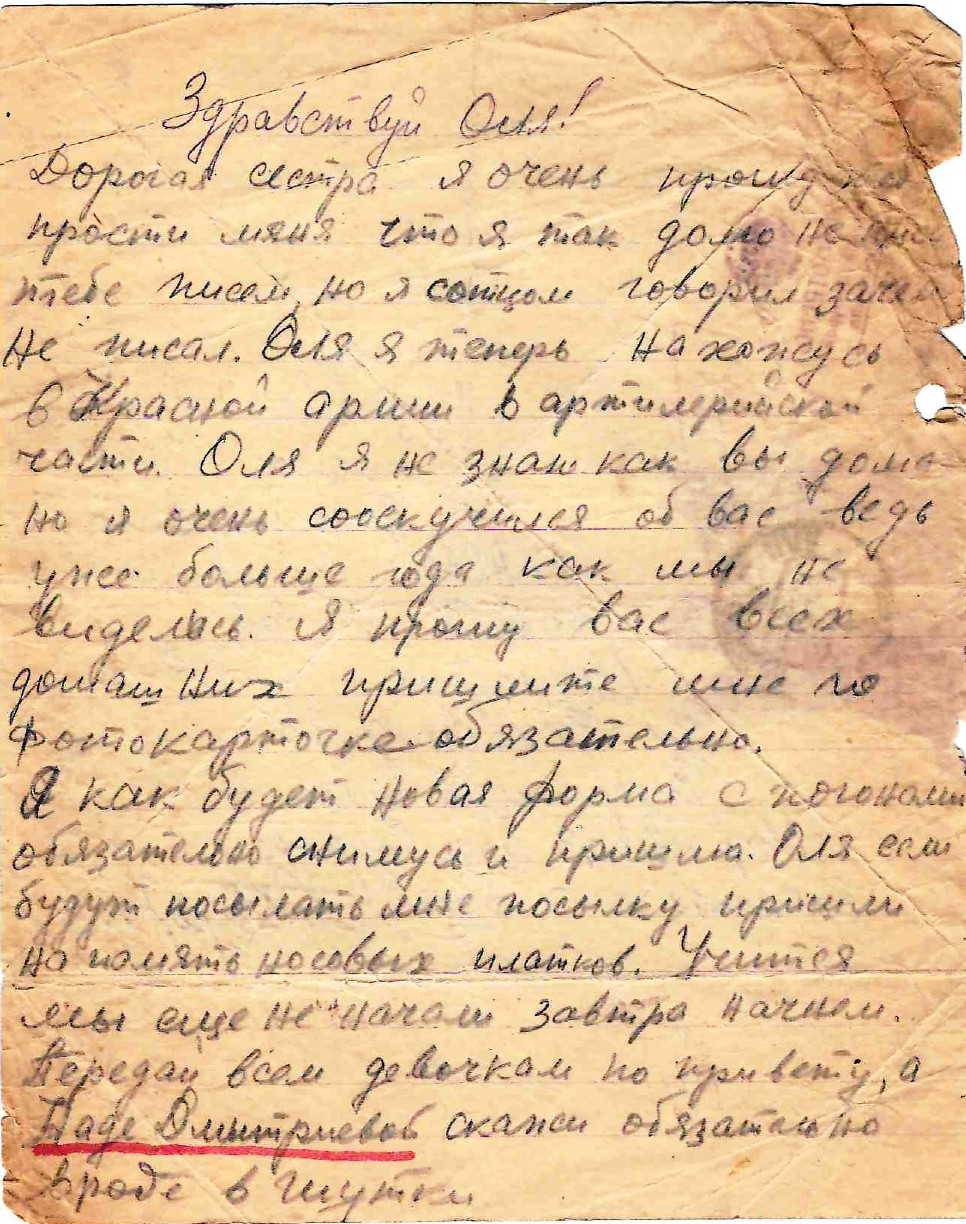 Здравствуй Оля!
Дорогая сестра я очень прошу тебя
прости мяня что я так долго не
тебе писем, но я сотцом говорил зачем
не писал. Оля я теперь нахожусь
в Красной армии в артилерийской
части. Оля я не знаю как вы дома
но я очень сооскучился об вас ведь
уже больше года как мы не
виделись. Я прошу вас всех
домашних пришлите мне по
фотокарточке обязательно.
Я как будет новая форма с погонами
обязательно снимусь и пришлю. Оля если
будут посылать мне посылку пришли
на память носовых платков. Учится
мы еще не начали завтра начнем.
Передай всем девочкам по привету, а
Наде Дмитриевой скажи обязательно
вроде в шутки